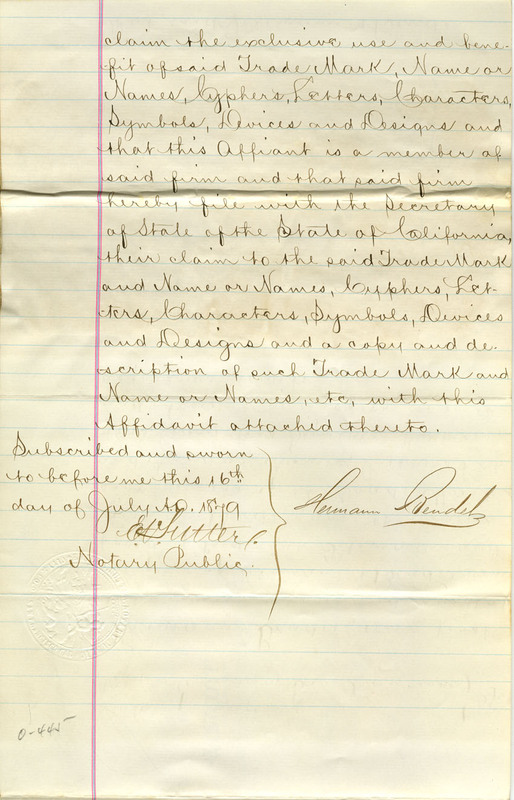 claim the exclusive use and bene-
fit of said Trade Mark, Name or
Names, Cyphers, Letters, Characters,
Symbols, Devices and Designs and
that this Affiant is a member of
said firm and that said firm
hereby file with the Secretary
of State of the State of California,
their claim to the said Trade Mark
and Name or Names, Cyphers, Let-
ters, Characters, Symbols, Devices
and Designs and a copy and de-
scription of such Trade Mark and
Name or Names, etc, with this
Affidavit attached thereto.
Subscribed and sworn
to before me this 16th
day of July A.D. 1879
Sutter
Notary Public.
Hermann
0-445